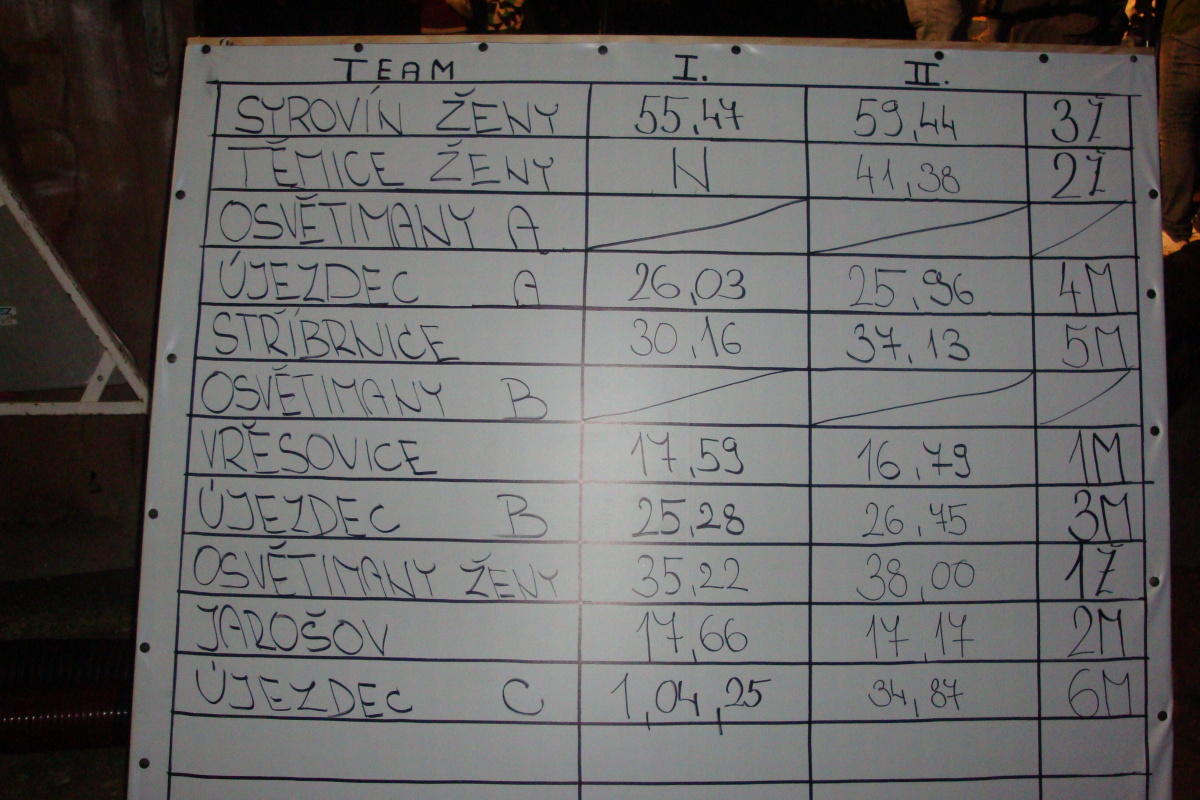 TEAM I. II.
SYROVÍN ŽENY 55,47 59,44 3Ž
TĚMICE ŽENY N 41,38 2Ž
OSVĚTIMANY A
ÚJEZDEC A 26,03 25,96 4M
STŘÍBRNICE 30,16 37,13 5M
OSVĚTIMANY B
VŘĚSOVICE 17,59 16,79 1M
ÚJEZDEC B 25,28 26,75 3M
OSVĚTIMANY ŽENY 35,22 38,00 1Ž
JAROŠOV 17,66 17,17 2M
ÚJEZDEC C 1,04,25 34,87 6M